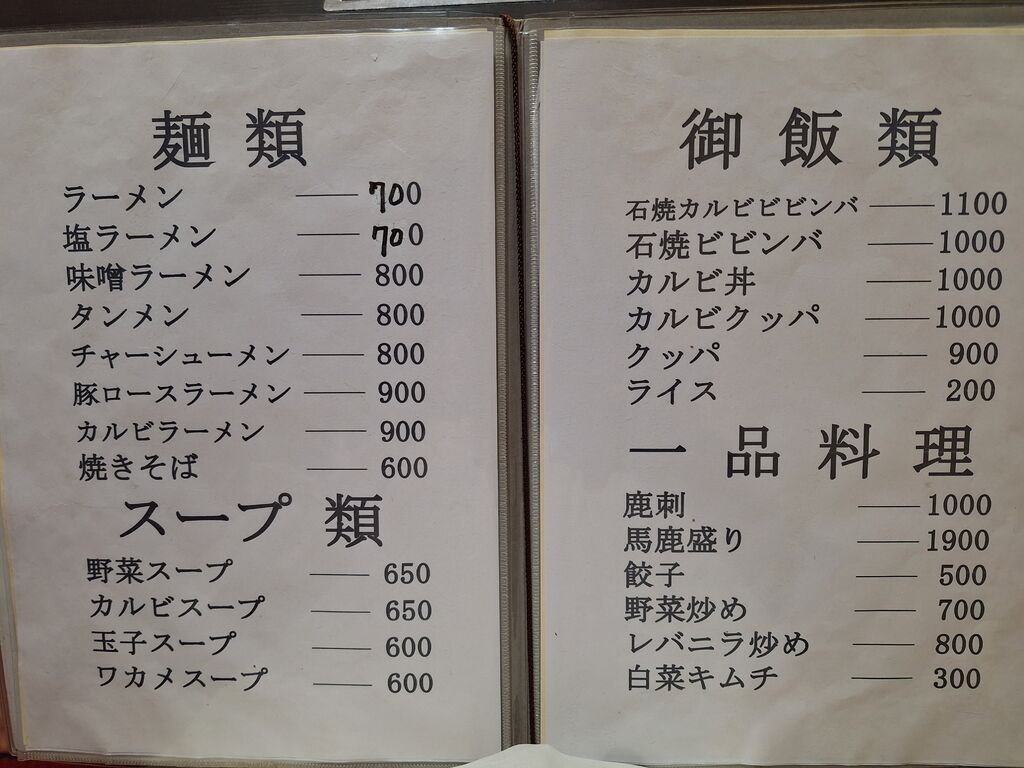 麺類
ラーメン ―― 700
塩ラーメン ―― 700
味噌ラーメン ―― 800
タンメン ―― 800
チャーシューメン ―― 800
豚ロースラーメン ―― 900
カルビラーメン ―― 900
焼きそば ―― 600
スープ類
野菜スープ ―― 650
カルビスープ ―― 650
玉子スープ ―― 600
ワカメスープ ―― 600
御飯類
石焼カルビビビンバ ―― 1100
石焼ビビンバ ―― 1000
カルビ丼 ―― 1000
カルビクッパ ―― 1000
クッパ ―― 900
ライス ―― 200
一品料理
鹿刺 ―― 1000
馬鹿盛り ―― 1900
餃子 ―― 500
野菜炒め ―― 700
レバニラ炒め ―― 800
白菜キムチ ―― 300